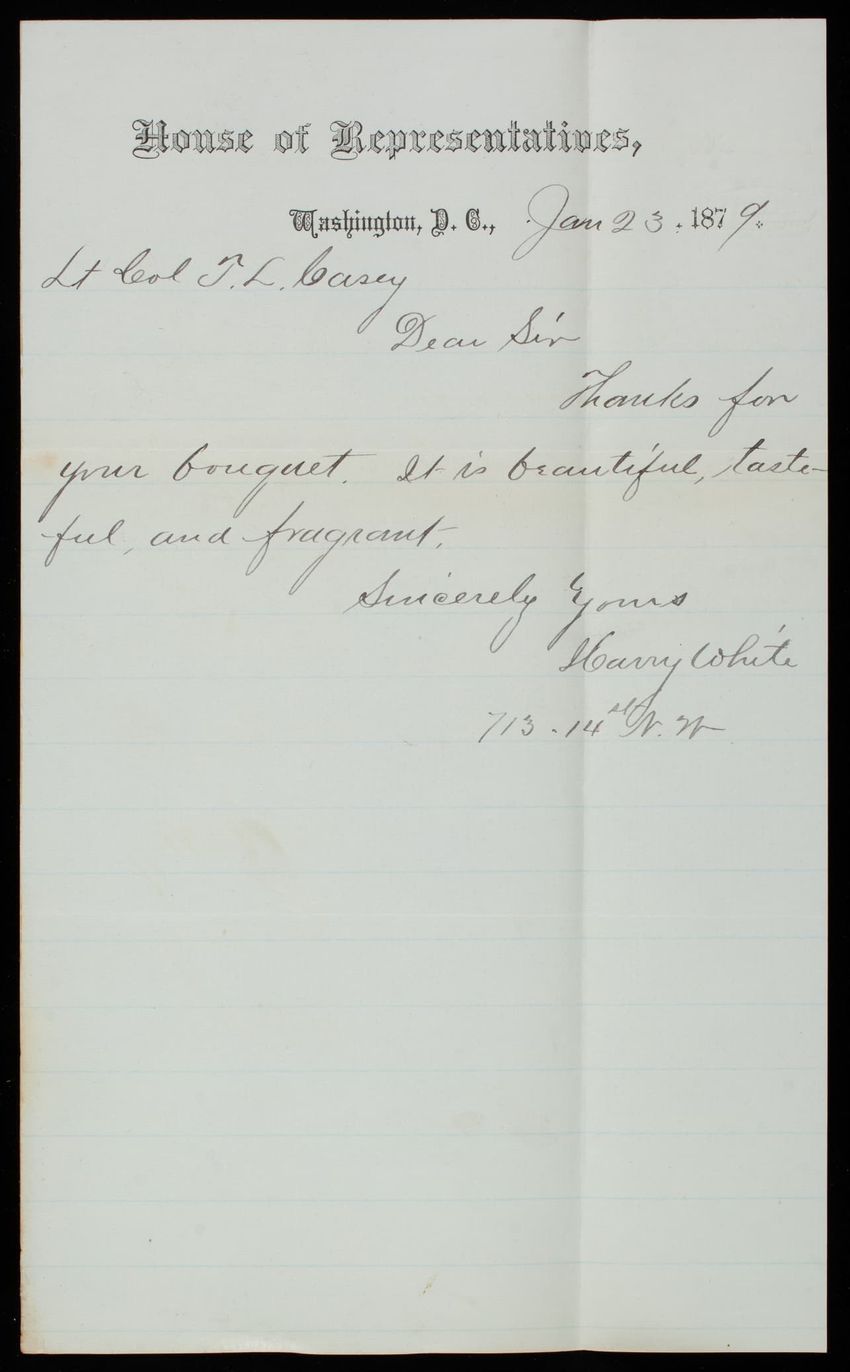 House of Representatives,
Washington, D. C., Jan 23. 1879.
Lt Col T. L. Casey
Dear Sir
Thanks for
your bouquet. It is beautiful, taste-
ful, and fragrant.
Sincerely Yours
Harry White
713 - 14th N. W